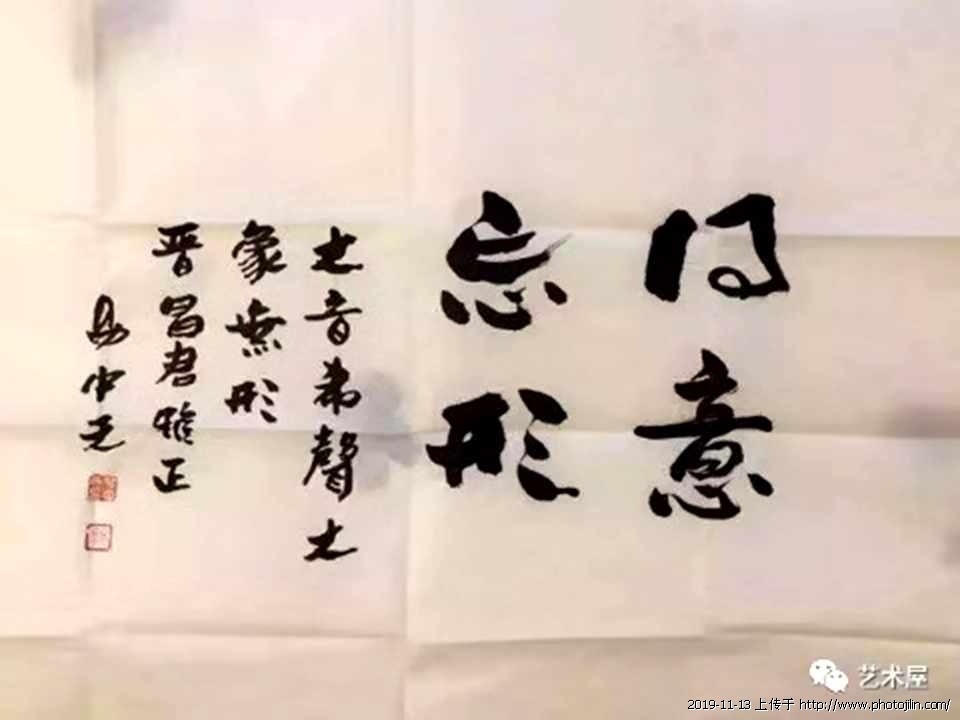 得意
忘形
大音希聲大
象無形
晋昌君雅正
易中天
艺术屋
2019-11-13 上传于 http://www.photojilin.com/